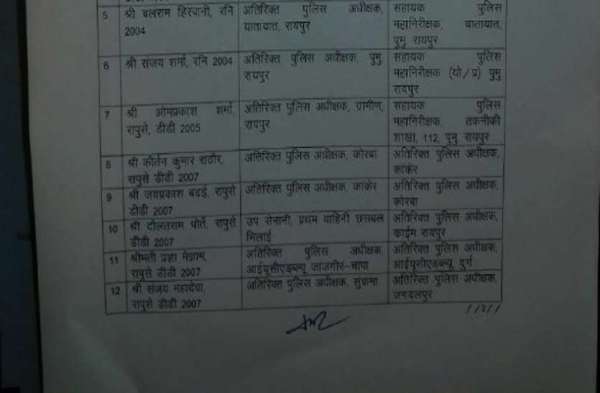 5 श्री बलराम हिरवानी, रनि 2004 अतिरिक्त पुलिस अधीक्षक, यातायात, रायपुर सहायक पुलिस महानिरीक्षक, यातायात, पुमु रायपुर
6 श्री संजय शर्मा, रनि 2004 अतिरिक्त पुलिस अधीक्षक, पुमु रायपुर सहायक पुलिस महानिरीक्षक (यो/प्र) पुमु रायपुर
7 श्री ओमप्रकाश शर्मा, रापुसे, डीडी 2005 अतिरिक्त पुलिस अधीक्षक, ग्रामीण, रायपुर सहायक पुलिस महानिरीक्षक, तकनीकी शाखा, 112, पुमु रायपुर
8 श्री कीर्तन कुमार राठौर, रापुसे डीडी 2007 अतिरिक्त पुलिस अधीक्षक, कोरबा अतिरिक्त पुलिस अधीक्षक, कांकेर
9 श्री जयप्रकाश बढई, रापुसे डीडी 2007 अतिरिक्त पुलिस अधीक्षक, कांकेर अतिरिक्त पुलिस अधीक्षक, कोरबा
10 श्री दौलतराम पोर्ते, रापुसे डीडी 2007 उप सेनानी, प्रथम वाहिनी छसबल भिलाई अतिरिक्त पुलिस अधीक्षक, काईम रायपुर
11 श्रीमती प्रज्ञा मेश्राम, रापुसे डीडी 2007 अतिरिक्त पुलिस अधीक्षक, आईयूसीएडब्ल्यू जांजगीर-चांपा अतिरिक्त पुलिस अधीक्षक, आईयूसीएडब्ल्यू, दुर्ग
12 श्री संजय महादेवा, रापुसे डीडी 2007 अतिरिक्त पुलिस अधीक्षक, सुकमा अतिरिक्त पुलिस अधीक्षक, जगदलपुर